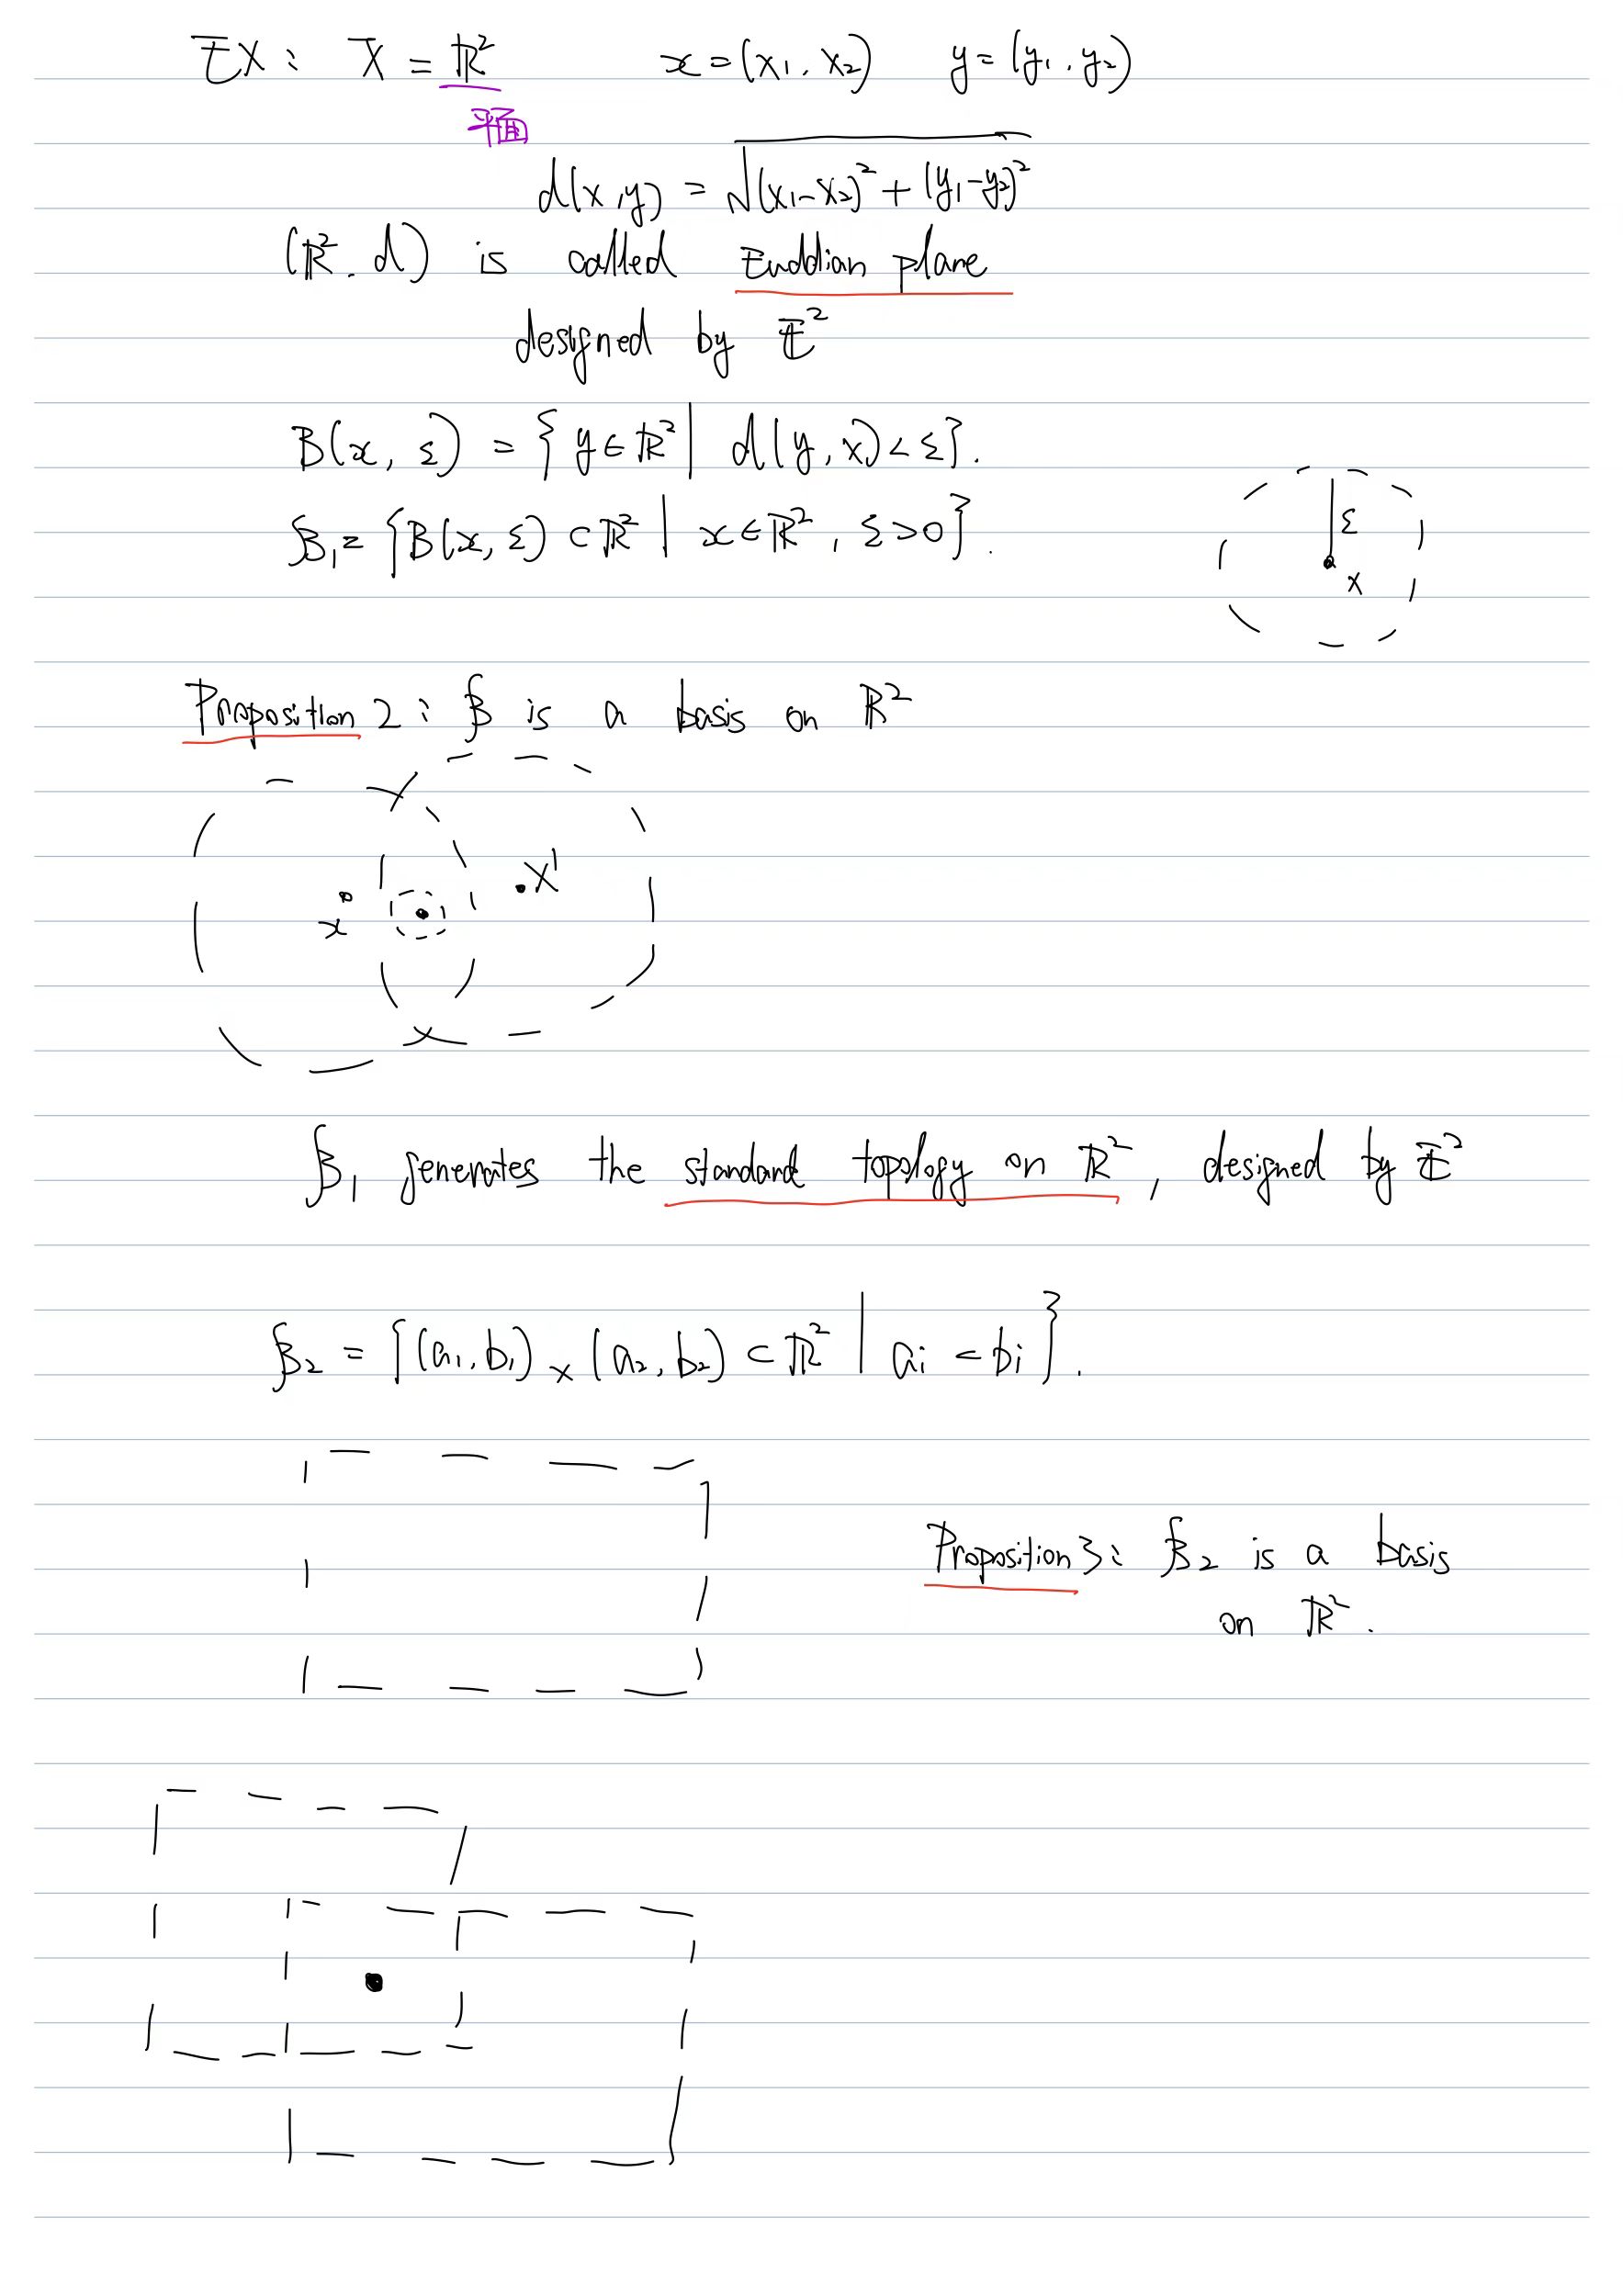 EX: X = ℝ² x = (x₁, x₂) y = (y₁, y₂)
平面
d(x, y) = √((x₁-x₂)² + (y₁-y₂)²)
(ℝ², d) is called Euddian plane
designed by 𝔼²
B(x, ε) = { y ∈ ℝ² | d(y, x) < ε }.
ℬ₁ = { B(x, ε) ⊂ ℝ² | x ∈ ℝ², ε > 0 }.
ε
x
Proposition 2: ℬ is a basis on ℝ²
x x'
ℬ₁ generates the standard topology on ℝ², designed by 𝔼²
ℬ₂ = { (a₁, b₁) × (a₂, b₂) ⊂ ℝ² | aᵢ < bᵢ }.
Proposition 3: ℬ₂ is a basis
on ℝ².